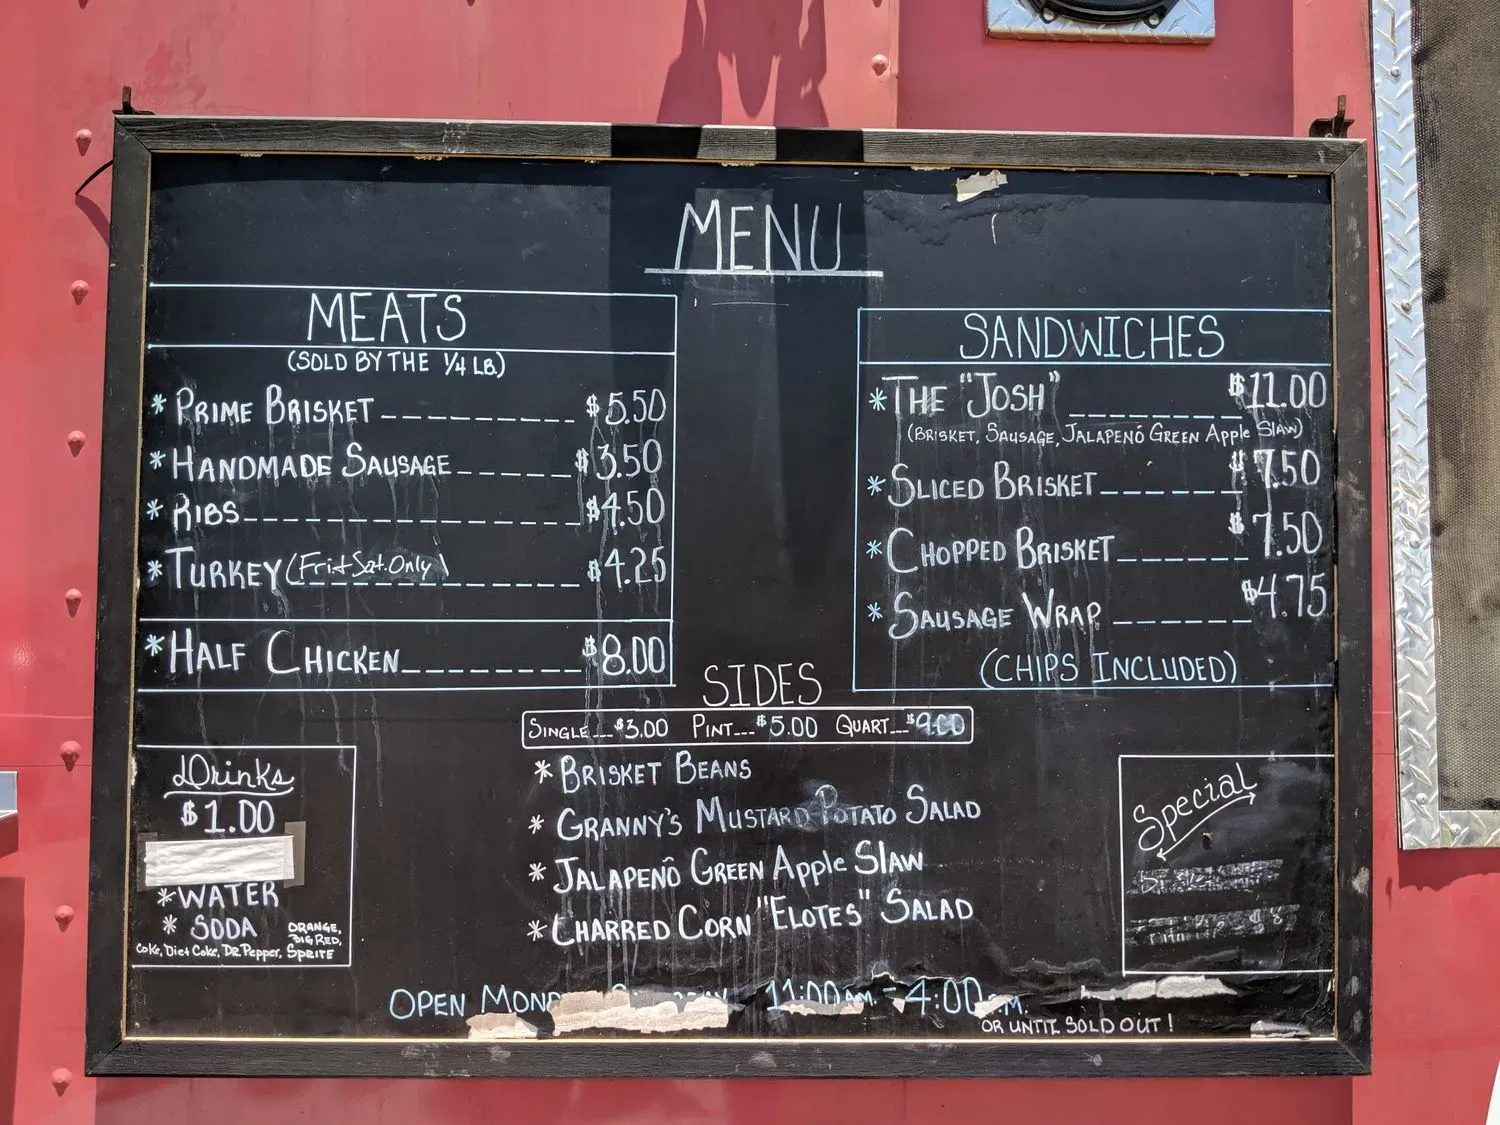 MENU
MEATS
(SOLD BY THE 1/4 LB.)
* PRIME BRISKET $5.50
* HANDMADE SAUSAGE $3.50
* RIBS $4.50
* TURKEY (Fri + Sat. Only) $4.25
* HALF CHICKEN $8.00
SANDWICHES
* THE "JOSH" $11.00
(BRISKET, SAUSAGE, JALAPENÓ GREEN Apple SlAW)
* SLICED BRISKET $7.50
* CHOPPED BRISKET $7.50
* SAUSAGE WRAP $4.75
(CHIPS INCLUDED)
SIDES
SINGLE $3.00 PINT $5.00 QUART $9.00
* BRISKET BEANS
* GRANNY'S MUSTARD POTATO SALAD
* JALAPENÓ GREEN Apple SlAW
* CHARRED CORN "ELOTES" SALAD
Drinks
$1.00
* WATER
* SODA ORANGE,
BIG RED,
Coke, Diet Coke, DR. Pepper, SPRITE
Special
OPEN 11:00 AM. - 4:00 .M.
OR UNTIL SOLD OUT!